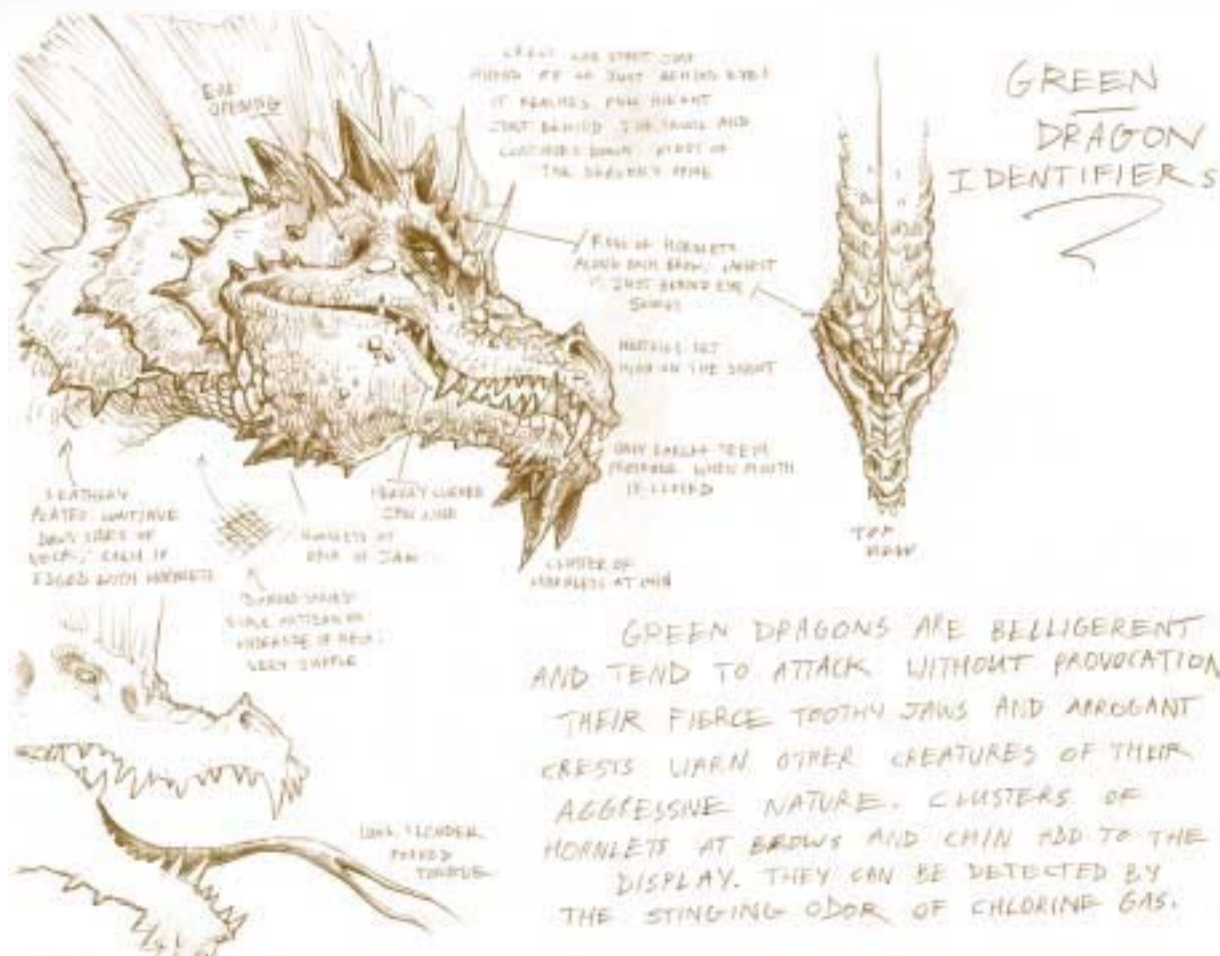 GREEN
DRAGON
IDENTIFIERS
EAR
OPENING
CREST
JUST BEHIND EYES
IT REACHES FULL HEIGHT
JUST BEHIND THE SKULL AND
CONTINUES DOWN MOST OF
THE DRAGON'S SPINE
ROW OF HORNLETS
ALONG EACH BROW, LARGEST
IS JUST BEHIND EYE
SOCKET
NOSTRILS SET
HIGH ON THE SNOUT
ONLY LARGER TEETH
PROTRUDE WHEN MOUTH
IS CLOSED
TOP
VIEW
LEATHERY
PLATES CONTINUE
DOWN SIDES OF
NECK, EACH IS
EDGED WITH HORNLETS
HEAVY CURVED
JAW LINE
HORNLETS AT
BACK OF JAW
CLUSTER OF
HORNLETS AT CHIN
DIAMOND-SHAPED
SCALE PATTERN ON
UNDERSIDE OF NECK,
VERY SUPPLE
LONG SLENDER
FORKED
TONGUE
GREEN DRAGONS ARE BELLIGERENT
AND TEND TO ATTACK WITHOUT PROVOCATION
THEIR FIERCE TOOTHY JAWS AND ARROGANT
CRESTS WARN OTHER CREATURES OF THEIR
AGGRESSIVE NATURE. CLUSTERS OF
HORNLETS AT BROWS AND CHIN ADD TO THE
DISPLAY. THEY CAN BE DETECTED BY
THE STINGING ODOR OF CHLORINE GAS.